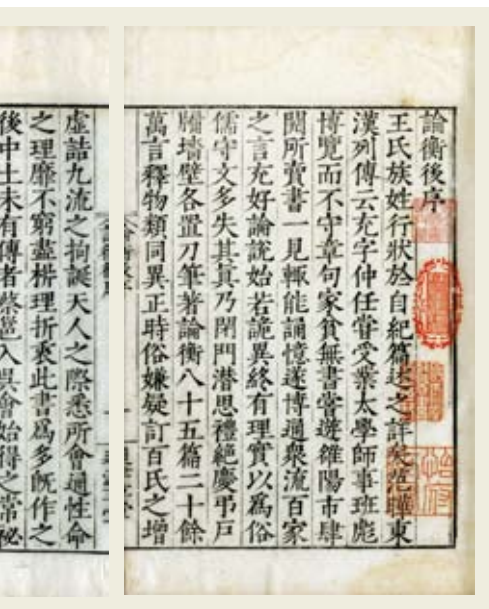 論衡後序
王氏族姓行狀於自紀篇述之詳矣范曄東
漢列傳云充字仲任嘗受業太學師事班彪
博覽而不守章句家貧無書嘗遊雒陽市肆
閱所賣書一見輒能誦憶遂博通衆流百家
之言充好論說始若詭異終有理實以爲俗
儒守文多失其真乃閉門潜思禮絕慶弔戶
牖墻壁各置刀筆著論衡八十五篇二十餘
萬言釋物類同異正時俗嫌疑訂百氏之增
虛詰九流之拘誕天人之際悉所會通性命
之理靡不窮盡析理折衷此書爲多旣作之
後中土未有傳者蔡邕入吳會始得之常秘